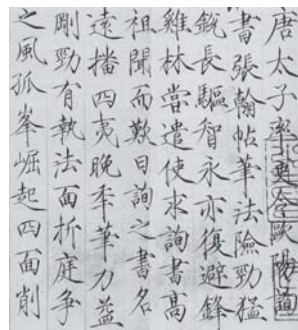 唐太子率更令歐陽詢
書張翰帖筆法險勁猛
銳長驅智永亦復避鋒
雞林嘗遣使求詢書高
祖聞而歎曰詢之書名
遠播四夷晚年筆力益
剛勁有執法面折庭爭
之風孤峯崛起四面削